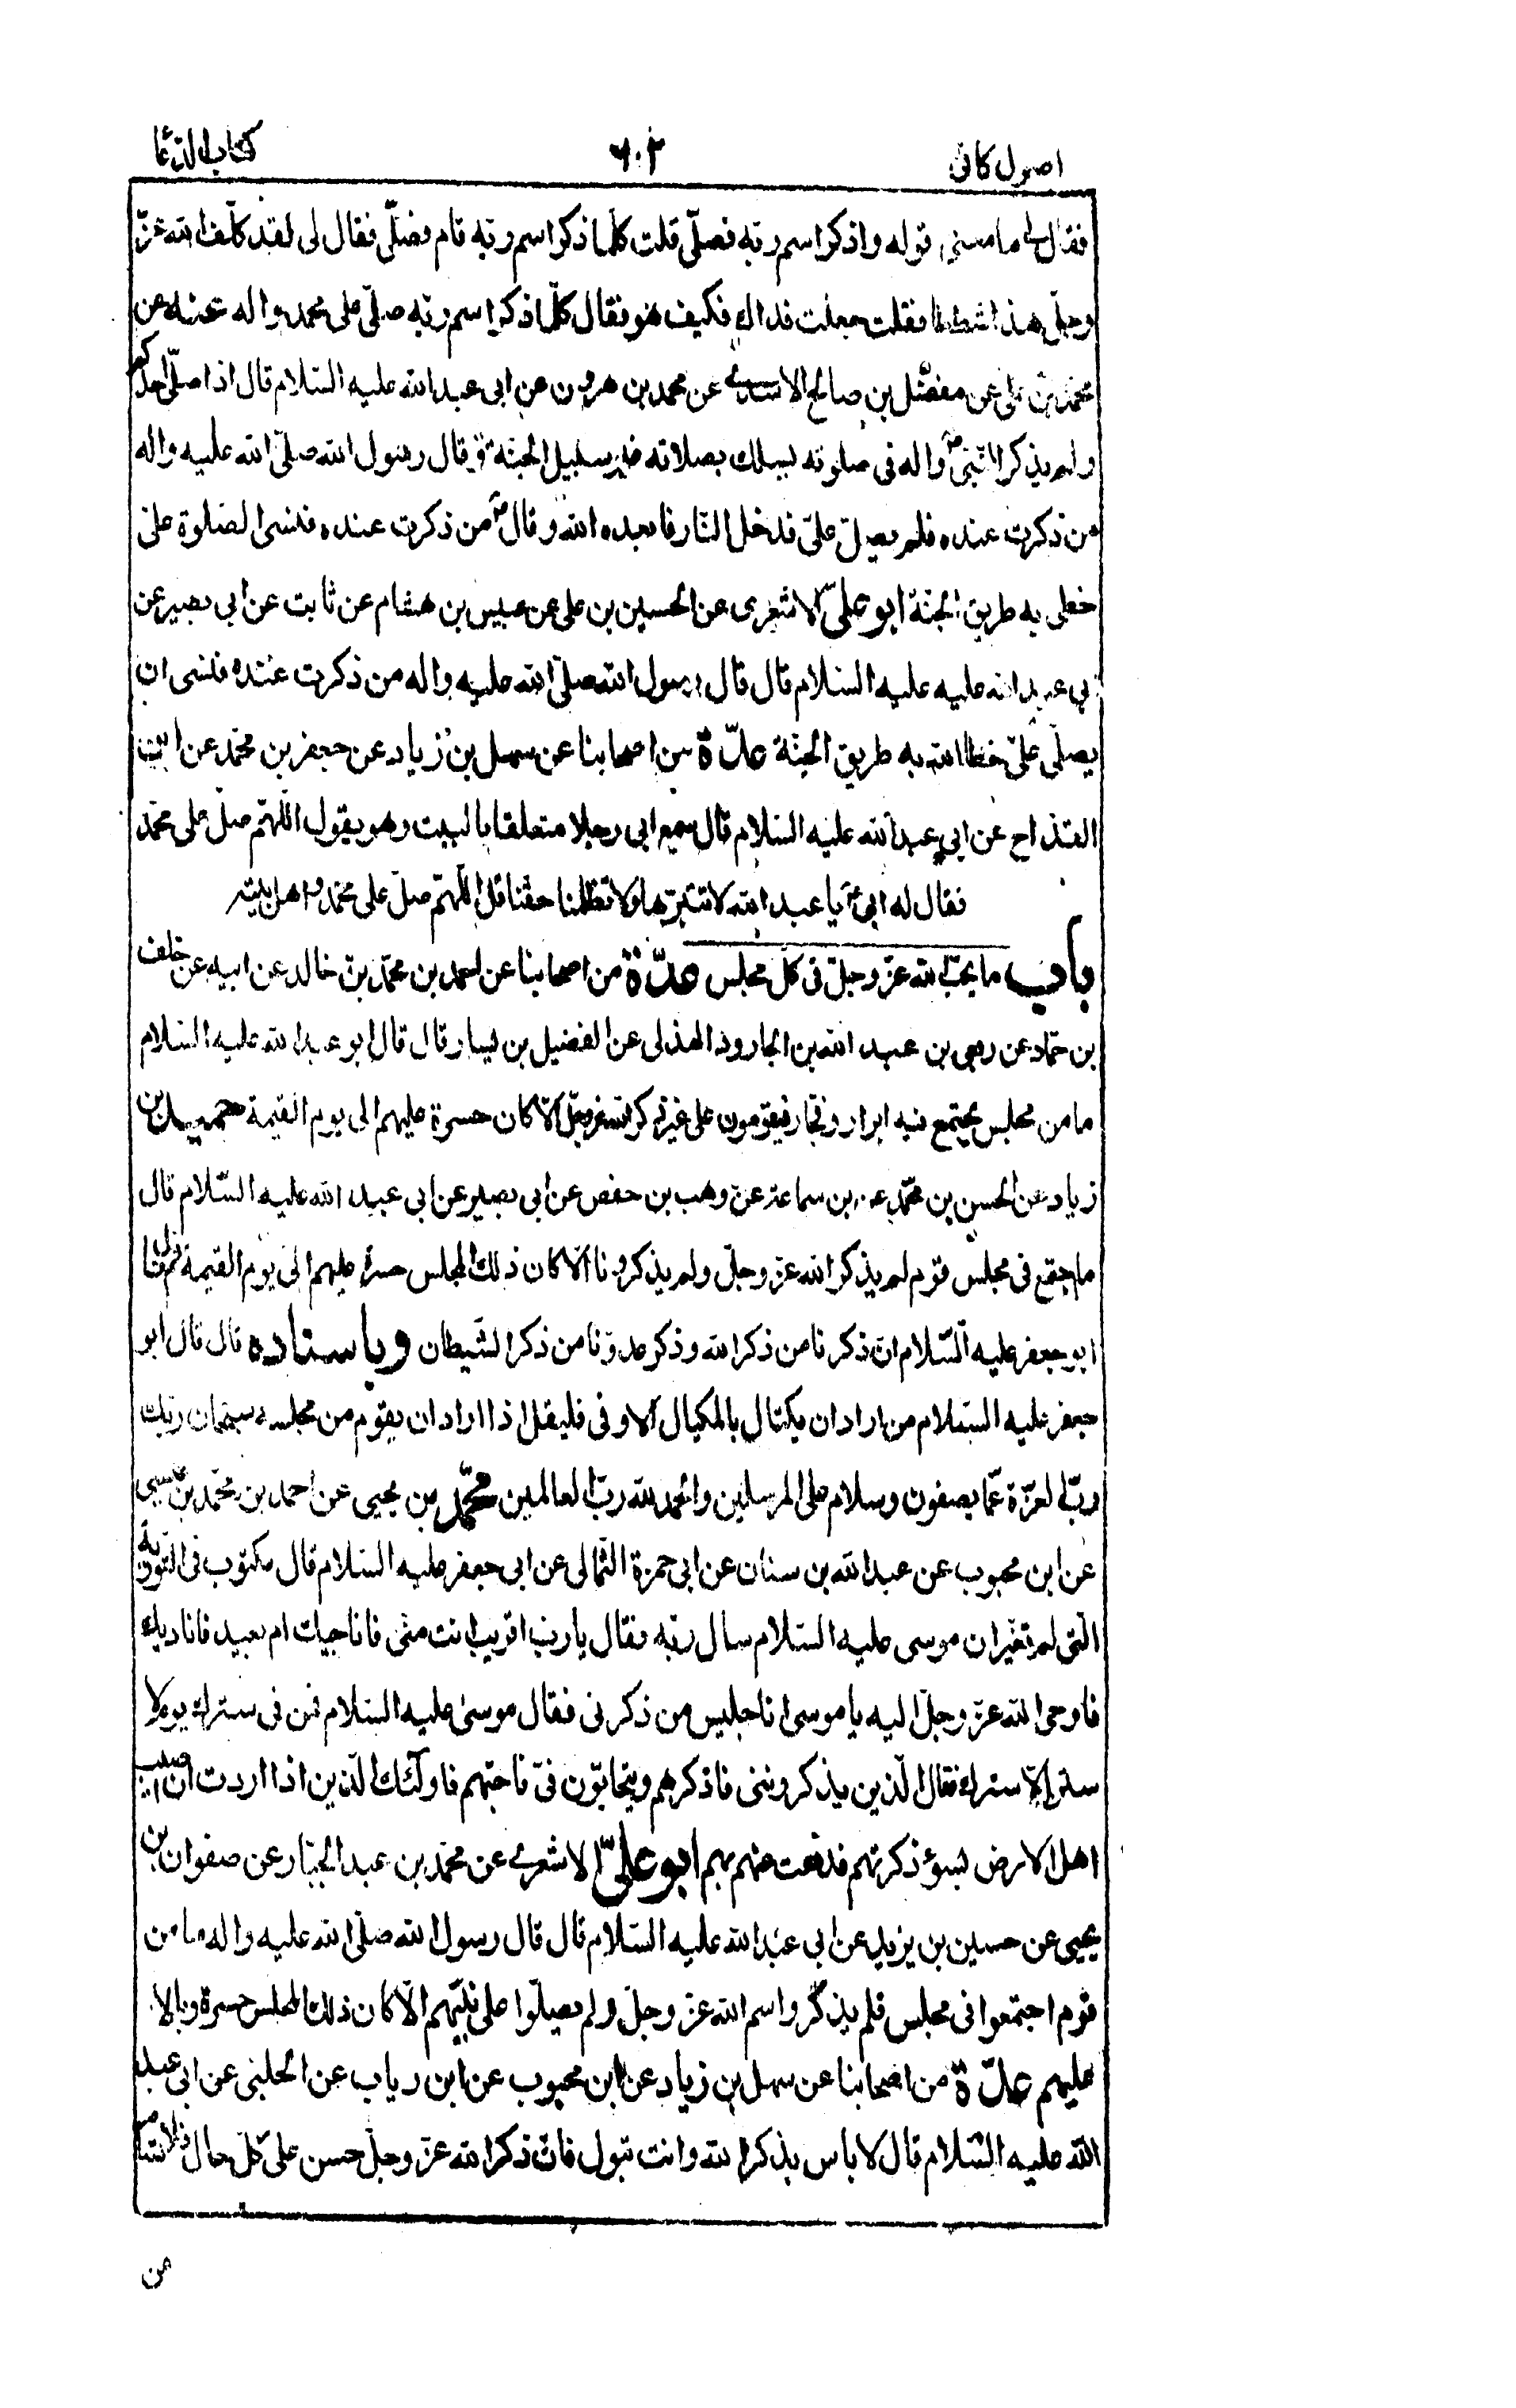 اصول كافى
٦٠٢
كتاب الدعا
فقال لى ما معنى قوله واذكر اسم ربه فصلّى قلت كلما ذكر اسم ربه قام فصلّى فقال لى لقد كلّف الله عزّ
وجلّ هذا شططا فقلت جعلت فداك فكيف هو فقال كلّما ذكر اسم ربه صلّى على محمد واله عنه عن
محمد بن على عن مفضّل بن صالح الاسدى عن محمد بن هرون عن ابى عبد الله عليه السّلام قال اذا صلّى احدكم
ولم يذكر النّبىّ واله فى صلوته يسلك بصلاته غير سبيل الجنّة وقال رسول الله صلّى الله عليه واله
من ذكرت عنده فلم يصلّ علىّ فدخل النّار فابعده الله وقال ص من ذكرت عنده فنسى الصّلوة علىّ
خطى به طريق الجنّة ابو علىّ الاشعرى عن الحسين بن على عن عبيس بن هشام عن ثابت عن ابى بصير عن
ابى عبد الله عليه عليه السّلام قال قال رسول الله صلّى الله عليه واله من ذكرت عنده فنسى ان
يصلّى علىّ خطا الله به طريق الجنّة عدّة من اصحابنا عن سهل بن زياد عن جعفر بن محمّد عن ابن
القدّاح عن ابى عبد الله عليه السّلام قال سمع ابى رجلا متعلقا بالبيت وهو يقول اللّهمّ صلّ على محمّد
فقال له ابى يا عبد الله لا تبترها ولا تظلمنا حقّنا قل اللّهمّ صلّ على محمّد واهل بيته
باب ما يجب لله عزّ وجلّ فى كلّ مجلس عدّة من اصحابنا عن احمد بن محمّد بن خالد عن ابيه عن خلف
بن حمّاد عن ربعى بن عبد الله بن الجارود الهذلى عن الفضيل بن يسار قال قال ابو عبد الله عليه السّلام
ما من مجلس يجتمع فيه ابرار وفجّار فيقومون على غير ذكر الله عزّ وجلّ الّا كان حسرة عليهم الى يوم القيمة حميد بن
زياد عن الحسن بن محمّد عن بن سماعة عن وهب بن حفص عن ابى بصير عن ابى عبد الله عليه السّلام قال
ما اجتمع فى مجلس قوم لم يذكر الله عزّ وجلّ ولم يذكرونا الّا كان ذلك المجلس حسرة عليهم الى يوم القيمة ثم قال
ابو جعفر عليه السّلام انّ ذكرنا من ذكر الله وذكر عدوّنا من ذكر الشّيطان وباسناده قال قال ابو
جعفر عليه السّلام من اراد ان يكتال بالمكيال الاوفى فليقل اذا اراد ان يقوم من مجلسه سبحان ربّك
ربّ العزّة عمّا يصفون وسلام على المرسلين والحمد لله ربّ العالمين محمّد بن يحيى عن احمد بن محمّد بن عيسى
عن ابن محبوب عن عبد الله بن سنان عن ابى حمزة الثّمالى عن ابى جعفر عليه السّلام قال مكتوب فى التّورية
الّتى لم تغيّر ان موسى عليه السّلام سال ربّه فقال يا ربّ اقريب انت منّى فاناجيك ام بعيد فاناديك
فاوحى الله عزّ وجلّ اليه يا موسى انا جليس من ذكرنى فقال موسى عليه السّلام فمن فى سترك يوم لا
ستر الّا سترك فقال الّذين يذكروننى فاذكرهم ويتحابّون فىّ فاحبّهم فاولئك الّذين اذا اردت ان اصيب
اهل الارض بسوء ذكرتهم فدفعت عنهم بهم ابو علىّ الاشعرى عن محمّد بن عبد الجبّار عن صفوان بن
يحيى عن حسين بن يزيد عن ابى عبد الله عليه السّلام قال قال رسول الله صلّى الله عليه واله ما من
قوم اجتمعوا فى مجلس فلم يذكروا اسم الله عزّ وجلّ ولم يصلّوا على نبيّهم الّا كان ذلك المجلس حسرة ووبالا
عليهم عدّة من اصحابنا عن سهل بن زياد عن ابن محبوب عن ابن رياب عن الحلبى عن ابى عبد
الله عليه السّلام قال لا باس بذكر الله وانت تبول فانّ ذكر الله عزّ وجلّ حسن على كلّ حال فلا تسام
من